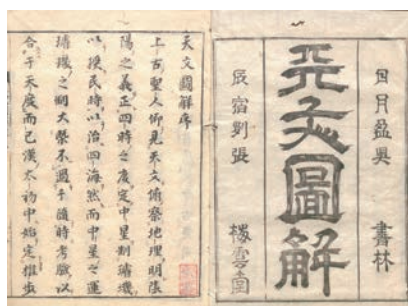 日月盈昃　書林
天文圖解
辰宿列張
天文圖解序
上古聖人仰見天文俯察地理明陰
陽之義正四時之度定中星制璿璣
以授民時以治四海然而中星之運
璿璣之制大槩不過乎隨時考驗以
合于天度而已漢太初中始定推步